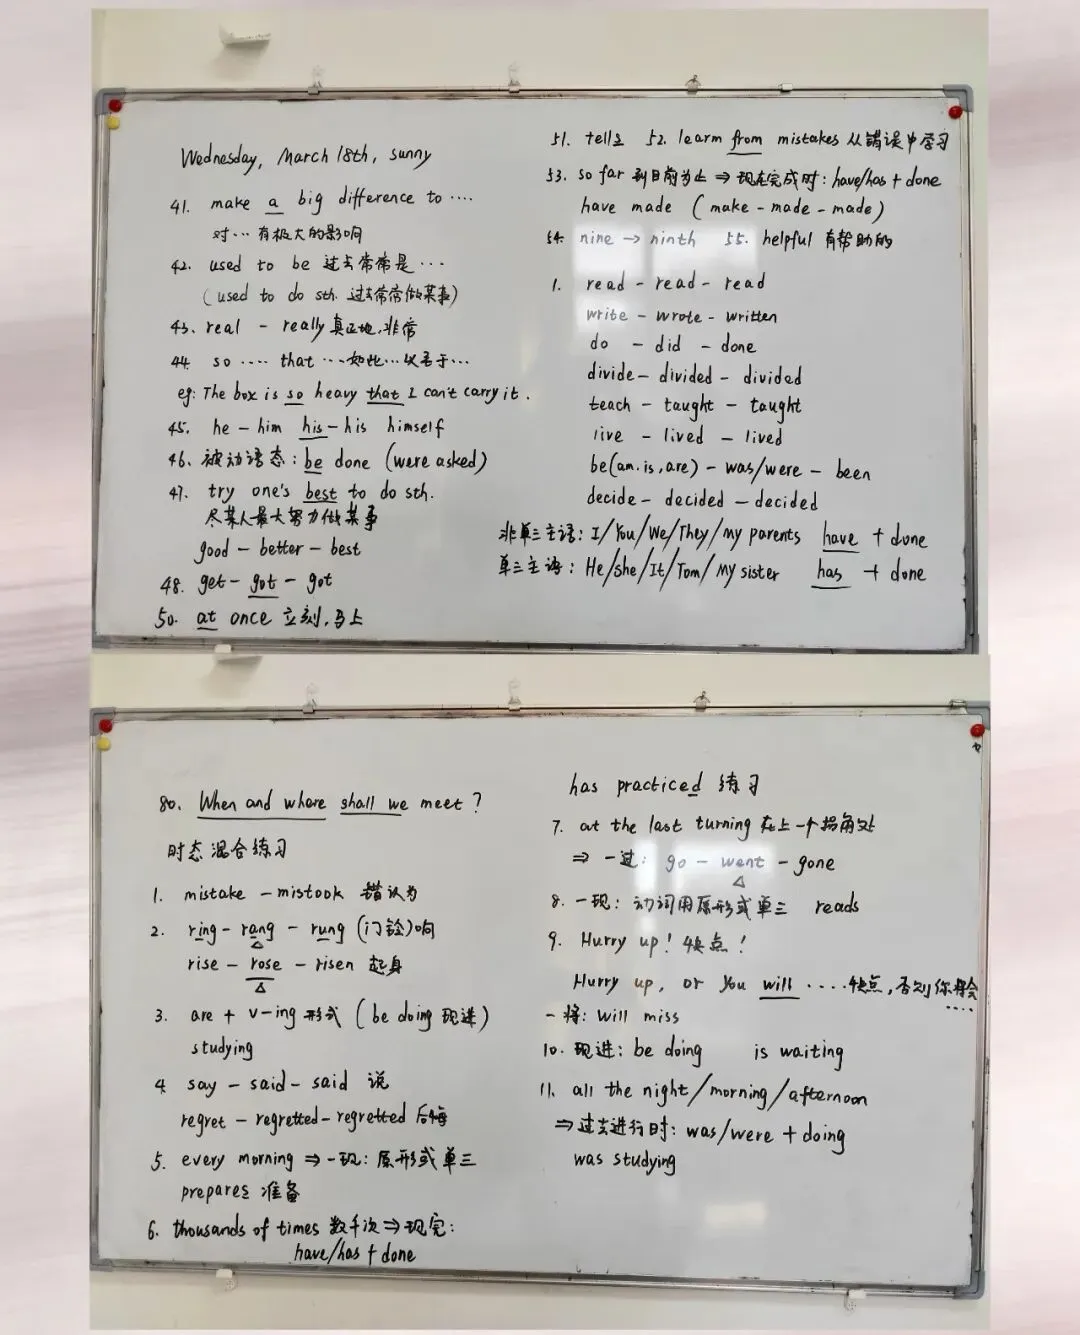 Wednesday, March 18th, sunny
41. make a big difference to ····
对··· 有极大的影响
42. used to be 过去常常是 ···
(used to do sth. 过去常常做某事)
43. real - really 真正地,非常
44. so ···· that ···如此···以至于···
eg: The box is so heavy that I can't carry it.
45. he - him his - his himself
46. 被动语态: be done (were asked)
47. try one's best to do sth.
尽某人最大努力做某事
good - better - best
48. get - got - got
50. at once 立刻,马上
51. tells 52. learn from mistakes 从错误中学习
53. so far 到目前为止 ⇒ 现在完成时: have/has + done
have made (make - made - made)
54. nine → ninth 55. helpful 有帮助的
1. read - read - read
write - wrote - written
do - did - done
divide - divided - divided
teach - taught - taught
live - lived - lived
be(am.is,are) - was/were - been
decide - decided - decided
非单三主语: I/You/We/They/My parents have + done
单三主语: He/she/It/Tom/My sister has + done
80. When and where shall we meet?
时态混合练习
1. mistake - mistook 错认为
2. ring - rang - rung (门铃)响
rise - rose - risen 起身
3. are + v-ing 形式 (be doing 现进)
studying
4. say - said - said 说
regret - regretted - regretted 后悔
5. every morning ⇒ 一现: 原形或单三
prepares 准备
6. thousands of times 数千次 ⇒ 现完:
have/has + done
has practiced 练习
7. at the last turning 在上一个拐角处
⇒ 一过: go - went - gone
8. 一现: 动词用原形或单三 reads
9. Hurry up! 快点!
Hurry up, or you will ····快点,否则你将会····
一将: will miss
10. 现进: be doing is waiting
11. all the night/morning/afternoon
⇒过去进行时: was/were + doing
was studying